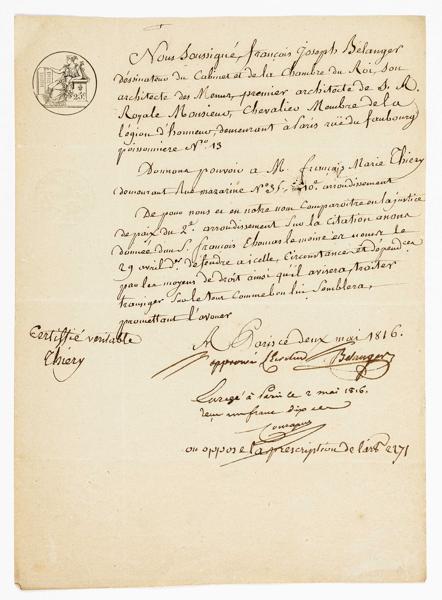 25 c.
Nous Soussigné, françois Joseph Bélanger
dessinateur du Cabinet et de la Chambre du Roi, son
architecte des Menus, premier architecte de S. A.
Royale Monsieur, Chevalier Membre de la
légion d'honneur, demeurant à Paris rue du faubourg
poissonniere N.° 13
Donnons pouvoir a M. françois Marie Thiery
demeurant Rue mazarine N.° 35, 10.e arrondissement
De pour nous et en notre nom Comparoitre en la justice
de paix du 2.e arrondissement Sur la Citation a nous
donnée d'un S. françois Thomas le moine en
29 avril d.er défendre a icelle, Circonstances et dépendces
par les moyens de droit ainsi qu'il avisera, traiter
transiger Sur le tout Comme bon lui Semblera,
promettant l'avouer
Certiffié veritable
Thiery
A Paris ce deux mai 1816.
approuvé L'Ecriture Belanger
à Paris le 2 mai 1816.
reçu un franc dix
ou oppose la prescription de l'art 2271